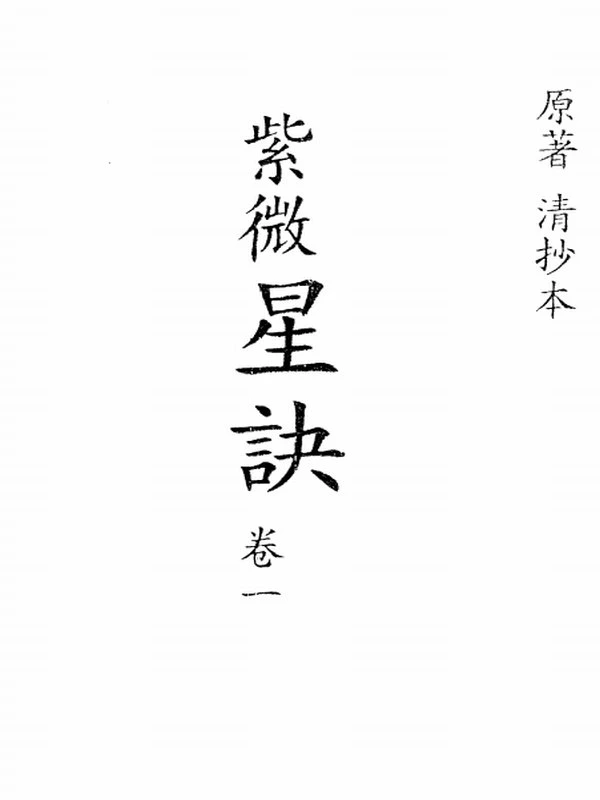 原著 清抄本
紫微星訣
卷一